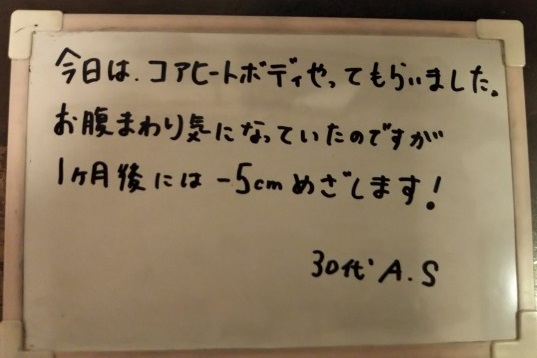 今日は、コアヒートボディやってもらいました。
お腹まわり気になっていたのですが
1ヶ月後には-5cmめざします!
30代 A.S